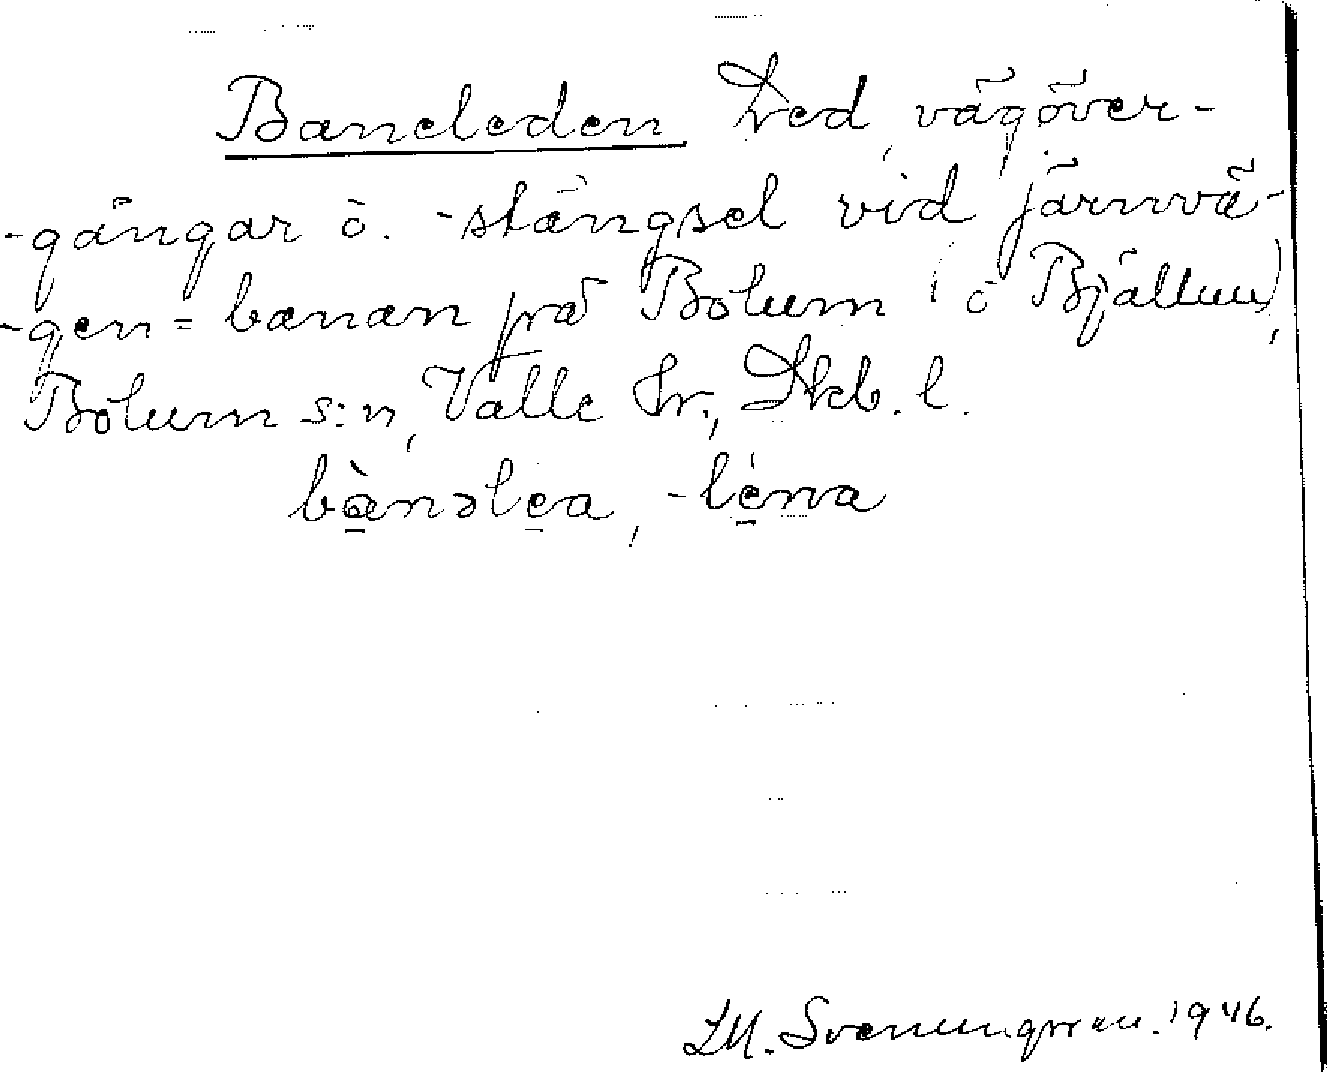 Baneleden Led, vägöver-
-gångar ö. -stängsel vid järnvä-
-gen = banan på Bolum (o Bjällum),
Bolum s:n, Valle hr., Skb. l.
bànəlea, -léna
LM. Svenungsson. 1946.